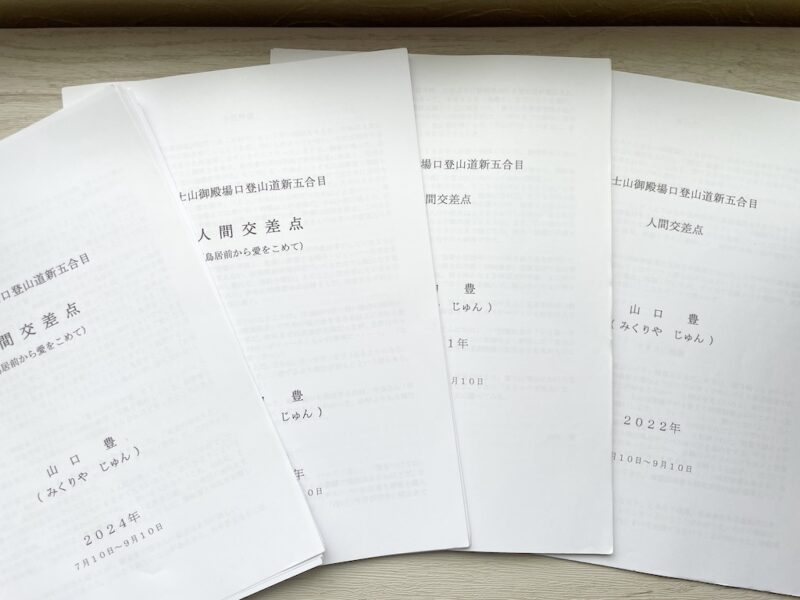 口登山道新五合目
間交差点
鳥居前から愛をこめて）
山口 豊
（みくりや じゅん）
２０２４年
７月１０日～９月１０日
士山御殿場口登山道新五合目
人間交差点
（鳥居前から愛をこめて）
豊
じゅん）
年
０日
場口登山道新五合目
間交差点
豊
じゅん）
１年
月１０日
士山御殿場口登山道新五合目
人間交差点
山口 豊
（みくりや じゅん）
２０２２年
月１０日～９月１０日